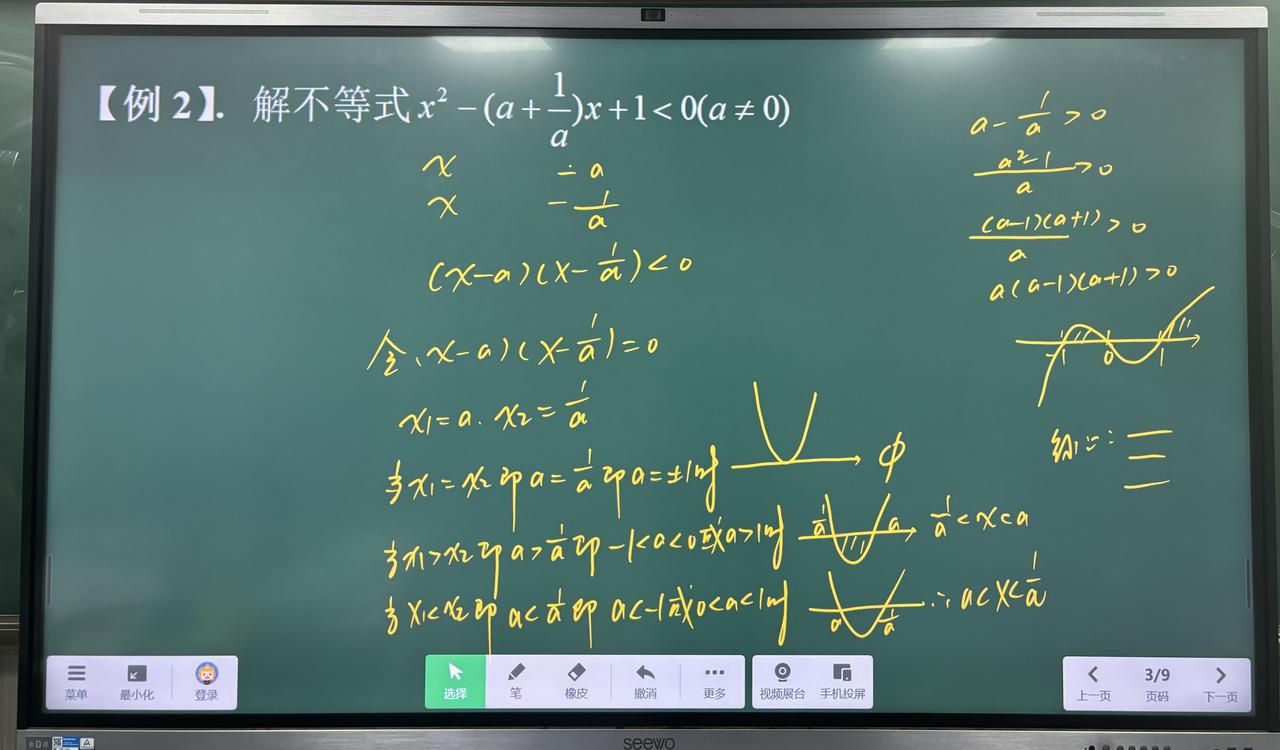 【例 2】. 解不等式 x² − (a + 1/a)x + 1 < 0 (a ≠ 0)
x − a
x − 1/a
(x−a)(x−1/a)<0
令(x−a)(x−1/a)=0
x₁=a. x₂=1/a
当x₁=x₂即a=1/a即a=±1时 ϕ
当x₁>x₂即a>1/a即−1<a<0或a>1时 1/a a 1/a<x<a
当x₁<x₂即a<1/a即a<−1或0<a<1时 a 1/a ∴a<x<1/a
a−1/a>0
a²−1/a>0
(a−1)(a+1)/a>0
a(a−1)(a+1)>0
−1 0 1
综上:
菜单
最小化
登录
选择
笔
橡皮
撤消
更多
视频展台
手机投屏
上一页
3/9
页码
下一页
seewo